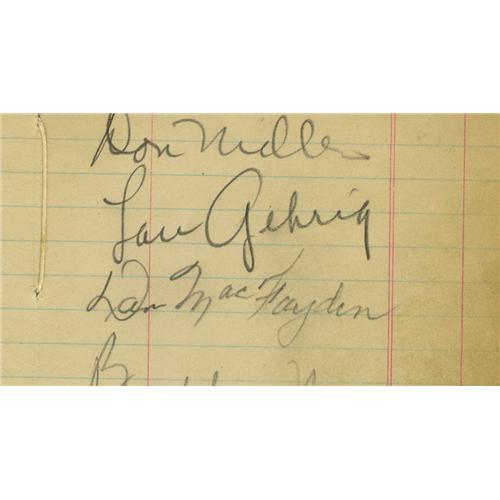 Don Miller
Lou Gehrig
Dan MacFayden